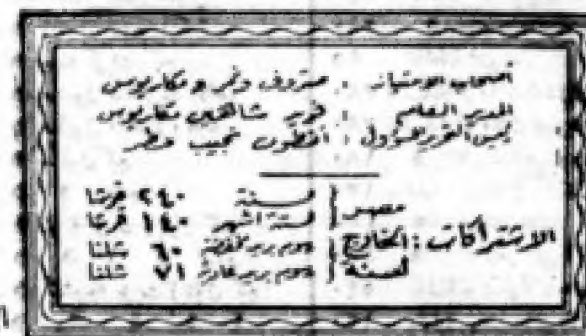 أصحاب الامتياز : صروف ونمر ومكاريوس
المدير العام : فؤاد شاهين مكاريوس
رئيس التحرير المسؤول : أنطون نجيب مطر
الاشتراكات :
مصر
لسنة ٢٤٠ قرشا
لستة اشهر ١٤٠ قرشا
الخارج لسنة
٦٠ شلنا
٧١ شلنا